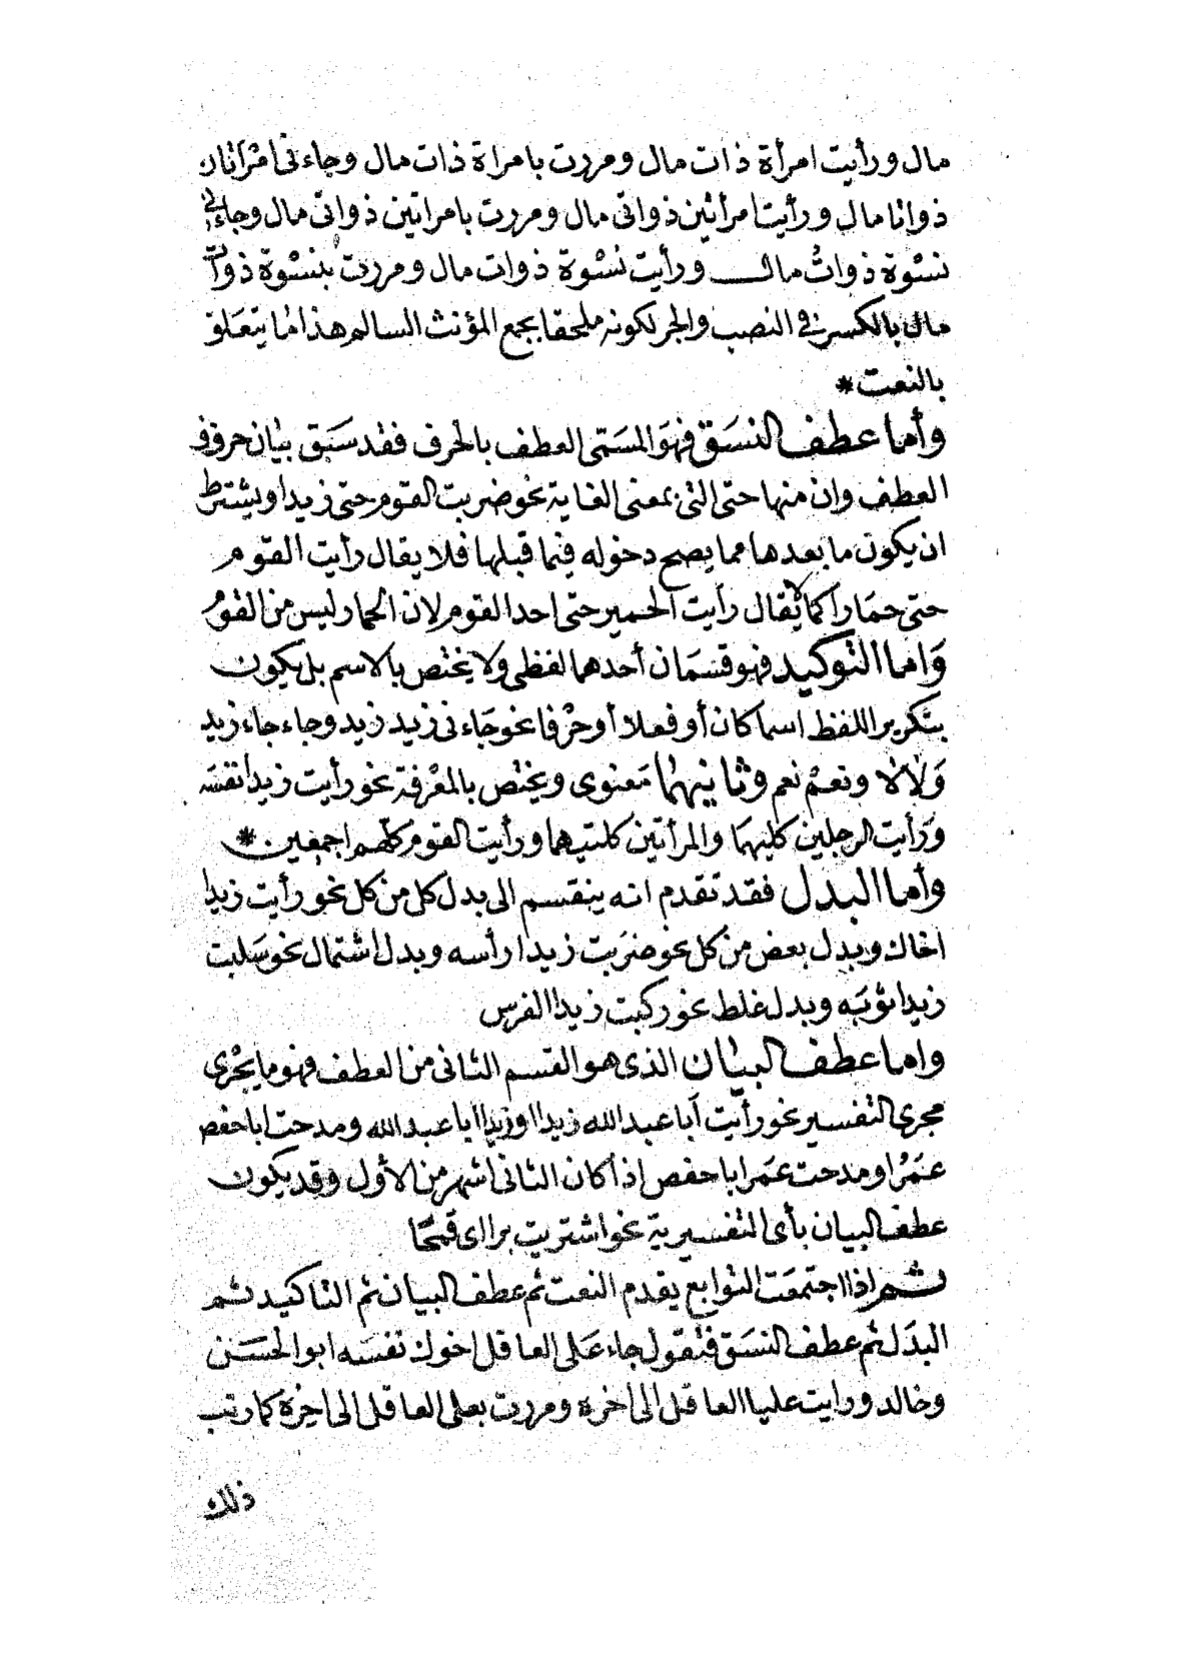 مال ورأيت امرأة ذات مال ومررت بامراة ذات مال وجاءنى امْرَاتان
ذواتا مال ورأيت امرأتين ذواتى مال ومررت بامراتين ذواتى مال وجاءنى
نسْوة ذواتُ مال ورأيت نسْوة ذوات مال ومررت بنسْوة ذوات
مال بالكسر فى النصب والجر لكونه ملحقا بجمع المؤنث السالم هذا ما يتعَلق
بالنعت *
وأما عطف النسَق فهوَ المسَمّى العطف بالحرف فقد سَبَق بيان حروف
العطف وان منها حتى التى بمعنى الغاية نحو ضربت القوم حتى زيدا ويشترط
ان يكون ما بعدها مما يصح دخوله فيما قبلها فلا يقال رأيت القوم
حتى حمَارا كما لا يُقال رأيت الحمير حتى احد القوم لان الحمار ليس من القوم
وَاما التوكيد فهو قسمَان أحدهما لفظى ولا يختص بالاسم بل يكون
بتكرير اللفظ اسما كان أو فعلا أو حرْفا نحو جَاءنى زيد زيد وجاء جاء زيد
وَلا لا ونعمْ نعم وثانيهما مَعنوى ويختص بالمعْرفة نحو رأيت زيدا نفسَه
وَرأيت الرجلين كليهمَا والمرأتين كلتيهما ورأيت القوم كلّهم اجمعين *
وأما البدل فقد تقدم انه ينقسم الى بدل كل من كل نحو رأيت زيدا
اخاك وبدل بعض من كل نحو ضرَبت زيدا رأسه وبدل اشتمال نحو سَلبت
زيدا ثوبَه وبدل غلط نحو ركبت زيدا الفرس
واما عطف البيان الذى هو القسم الثانى من العطف فهو ما يجْرى
مجرى التفسير نحو رأيت أبا عبد الله زيدا او زيدا ابا عبد الله ومدحت ابا حفص
عمَرُا ومدحت عمَرا ابا حفص اذا كان الثانى اشهر من الأول وقد يكون
عطف البيان بأى التفسيرية نحو اشتريت برا اى قمحًا
ثم اذا اجتمعَت التوابع يقدم النعت ثم عطف البيان ثم التاكيد ثم
البدَل ثم عطف النسَق فتقول جاء عَلى العاقل اخوك نفسَه ابو الحسَن
وخالد ورايت عليا العاقل الى اخره ومررت بعلى العاقل الى اخِرة كما رتب
ذلك